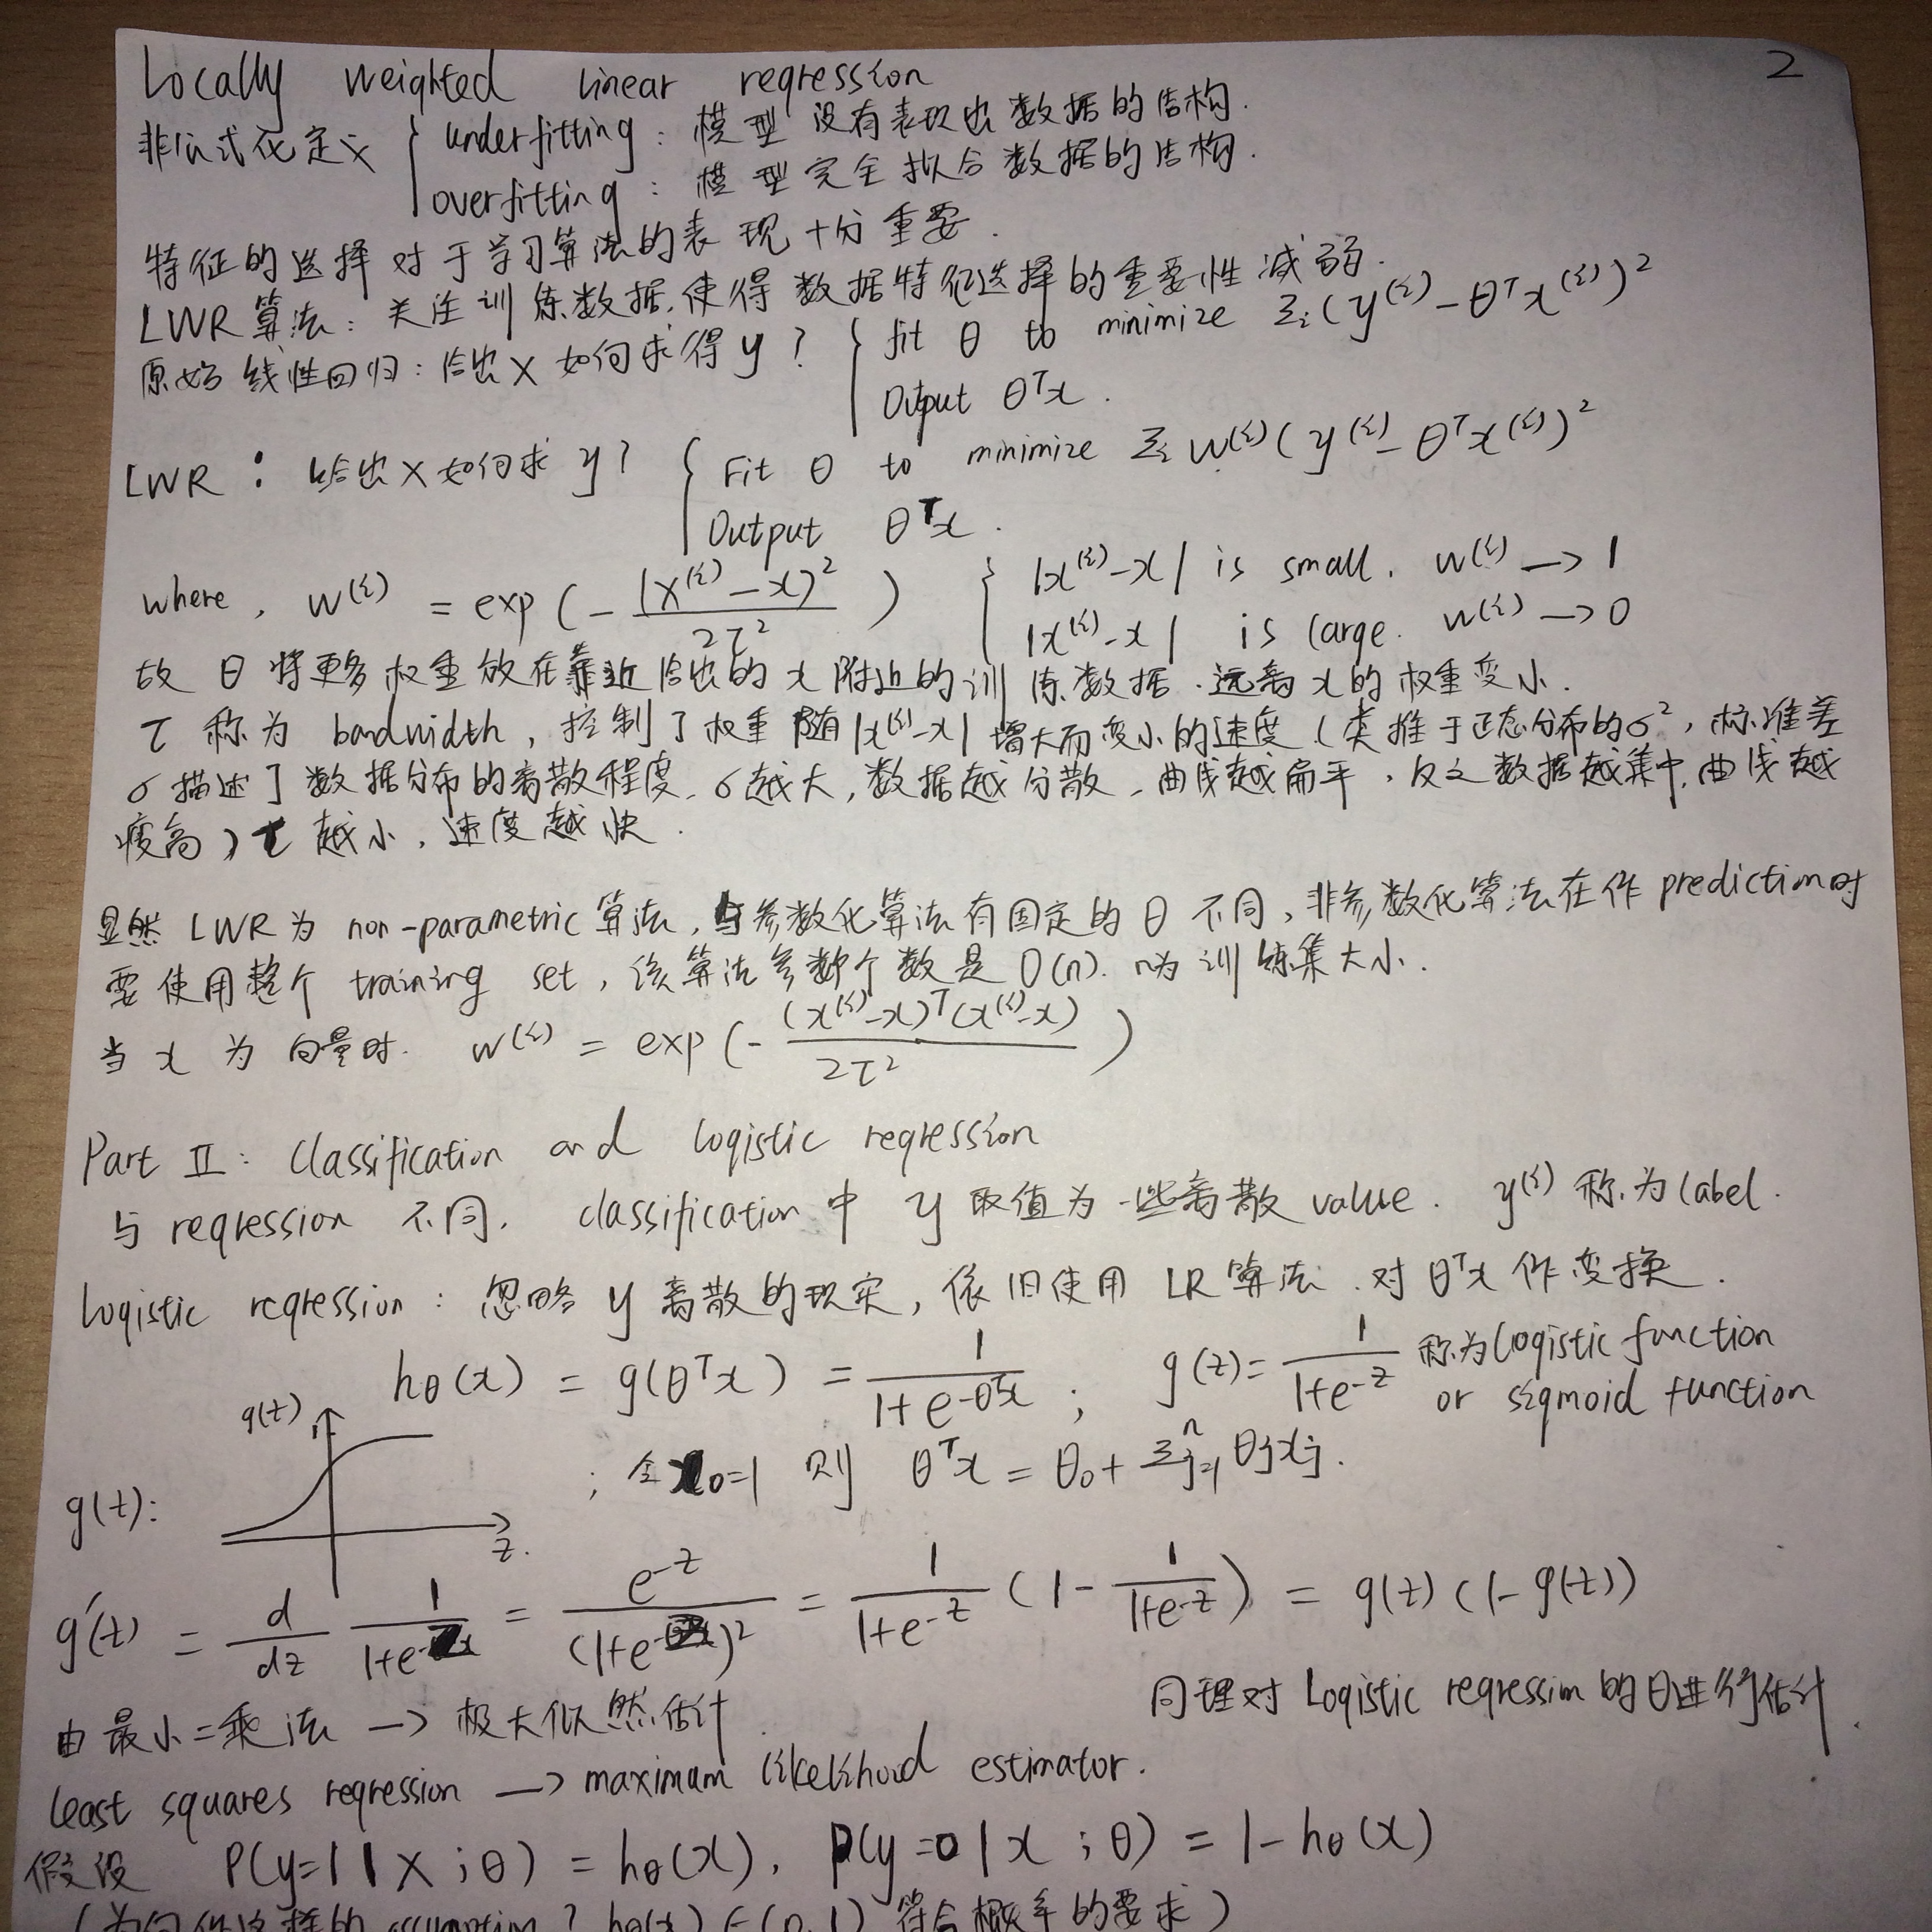 2
Locally weighted linear regression
非公式化定义 { underfitting : 模型没有表现出数据的结构.
overfitting : 模型完全拟合数据的结构.
特征的选择对于学习算法的表现十分重要.
LWR算法: 关注训练数据,使得数据特征选择的重要性减弱.
原始线性回归: 给出x如何求得y? { fit θ to minimize Σi (y⁽ⁱ⁾ - θᵀx⁽ⁱ⁾)²
Output θᵀx.
LWR: 给出x如何求y? { Fit θ to minimize Σi w⁽ⁱ⁾(y⁽ⁱ⁾ - θᵀx⁽ⁱ⁾)²
Output θᵀx.
where, w⁽ⁱ⁾ = exp(- (x⁽ⁱ⁾ - x)² / 2τ²) { |x⁽ⁱ⁾-x| is small. w⁽ⁱ⁾ → 1
|x⁽ⁱ⁾-x| is large. w⁽ⁱ⁾ → 0
故θ将更多权重放在靠近给出的x附近的训练数据.远离x的权重变小.
τ称为bandwidth, 控制了权重随|x⁽ⁱ⁾-x|增大而变小的速度(类推于正态分布的σ², 标准差
σ描述了数据分布的离散程度,σ越大,数据越分散,曲线越扁平,反之数据越集中,曲线越
瘦高) τ越小,速度越快.
显然LWR为non-parametric算法,与参数化算法有固定的θ不同,非参数化算法在作prediction时
要使用整个training set, 该算法参数个数是O(n). n为训练集大小.
当x为向量时. w⁽ⁱ⁾ = exp(- (x⁽ⁱ⁾-x)ᵀ(x⁽ⁱ⁾-x) / 2τ²)
Part II: Classification and logistic regression
与regression不同, classification中y取值为一些离散value. y⁽ⁱ⁾称为label.
Logistic regression: 忽略y离散的现实,依旧使用LR算法.对θᵀx作变换.
hθ(x) = g(θᵀx) = 1 / 1+e^-θᵀx ; g(z) = 1 / 1+e^-z 称为logistic function
or sigmoid function
g(z)
; 令x₀=1 则 θᵀx = θ₀ + Σⁿj=1 θjxj.
g(z):
z.
g'(z) = d/dz 1 / 1+e^-z = e^-z / (1+e^-z)² = 1 / 1+e^-z (1 - 1 / 1+e^-z) = g(z)(1-g(z))
由最小二乘法 → 极大似然估计. 同理对Logistic regression的θ进行估计.
least squares regression → maximum likelihood estimator.
假设 P(y=1|x;θ) = hθ(x), P(y=0|x;θ) = 1-hθ(x)
(为何作这样的assumption? hθ(x)∈(0,1) 符合概率的要求)